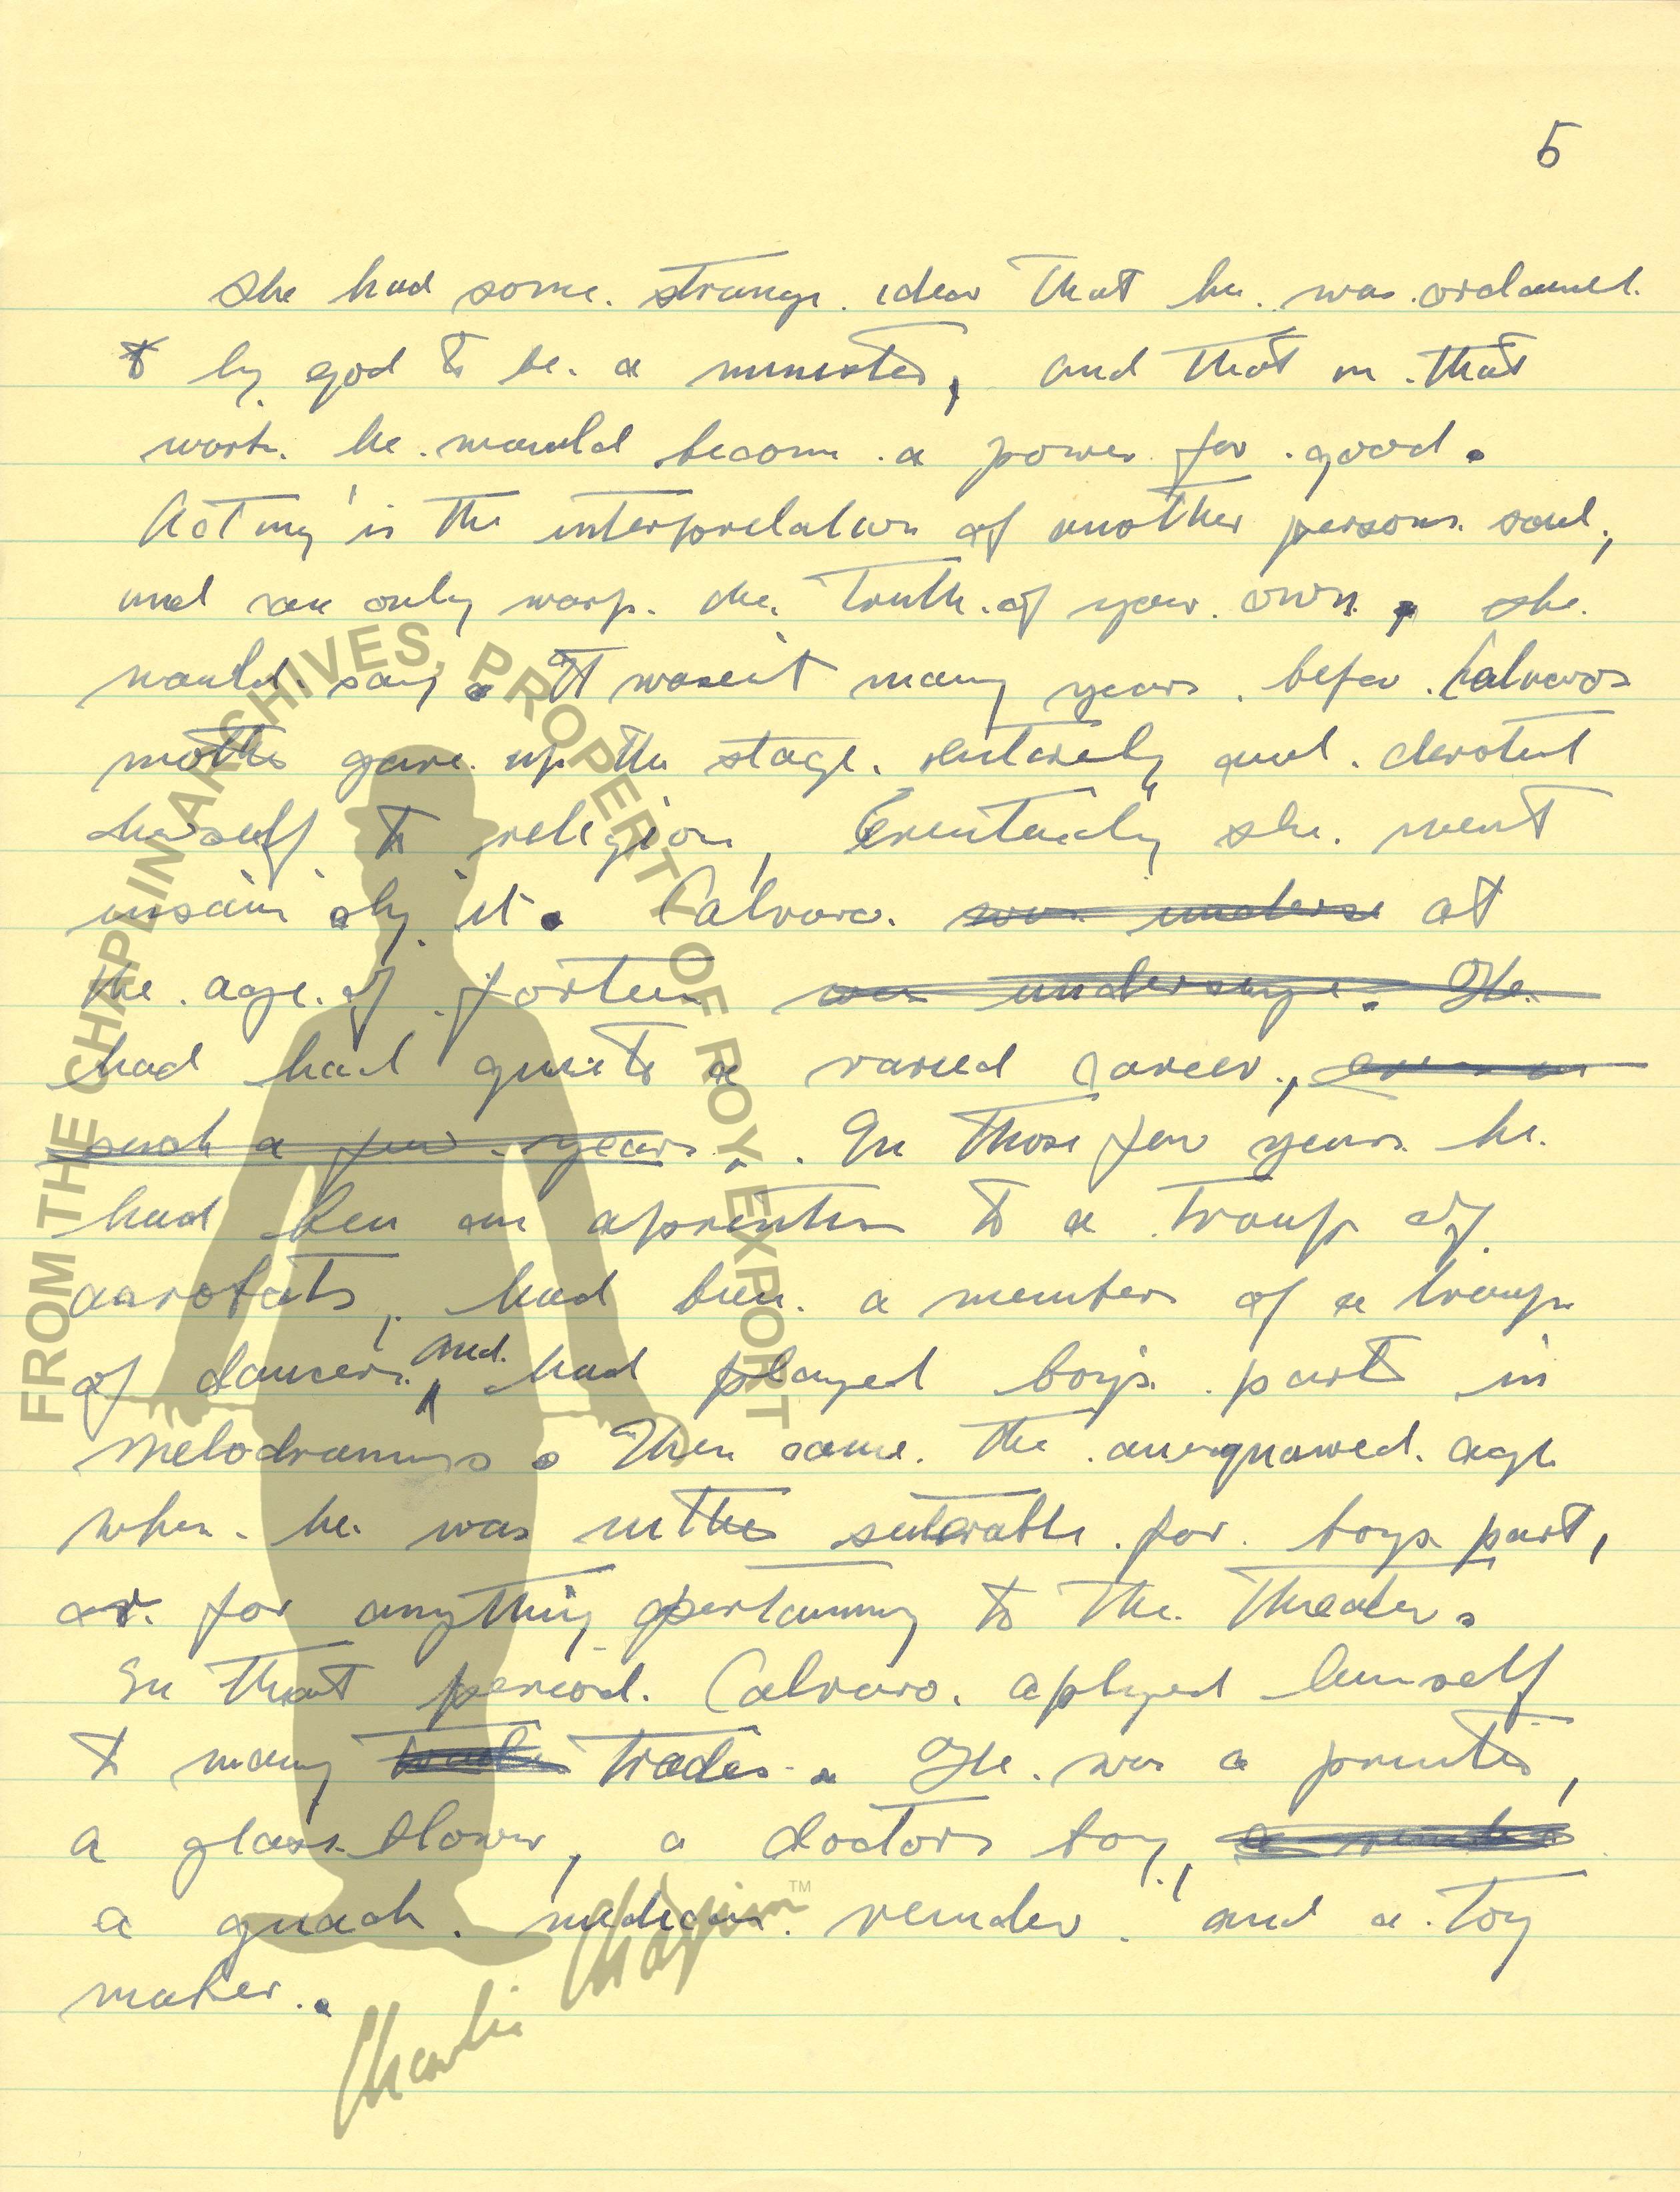 5
she had some strange idea that he was ordained
to by god to be a minister, and that in that
work he would become a power for good.
Acting is the interpretation of another persons soul,
and can only warp the truth of your own, she
would say. "It wasen't many years befor Calveros
mother gave up the stage entirely and devoted
herself to religion, Eventualy she went
insain by it. Calvaro was underse at
the age of forteen was underaage. He
had had quite a varied career, even in
such a few years. In those few years he
had ben an aprentice to a troup of
acrobats, had been a member of a troup
of dancers and had played boys parts in
melodramas. Then came the awquawed age
when he was neither suterable for boys part,
or for anything pertaining to the theater.
In that period Calvaro aplyed himself
to many trades. He was a printer,
a glass blower, a doctors boy, a vender
a quack medicin vender and a toy
maker.
FROM THE CHAPLIN ARCHIVES, PROPERTY OF ROY EXPORT
Charlie Chaplin™